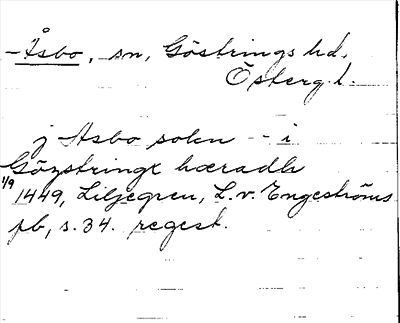 - Åsbo, sn, Göstrings hd.
Österg. l.
j Asbo sokn - i
Gözstringx hæradh
1/9 1449, Liljegren, L. v. Engeströms
pb, s. 34. regest.